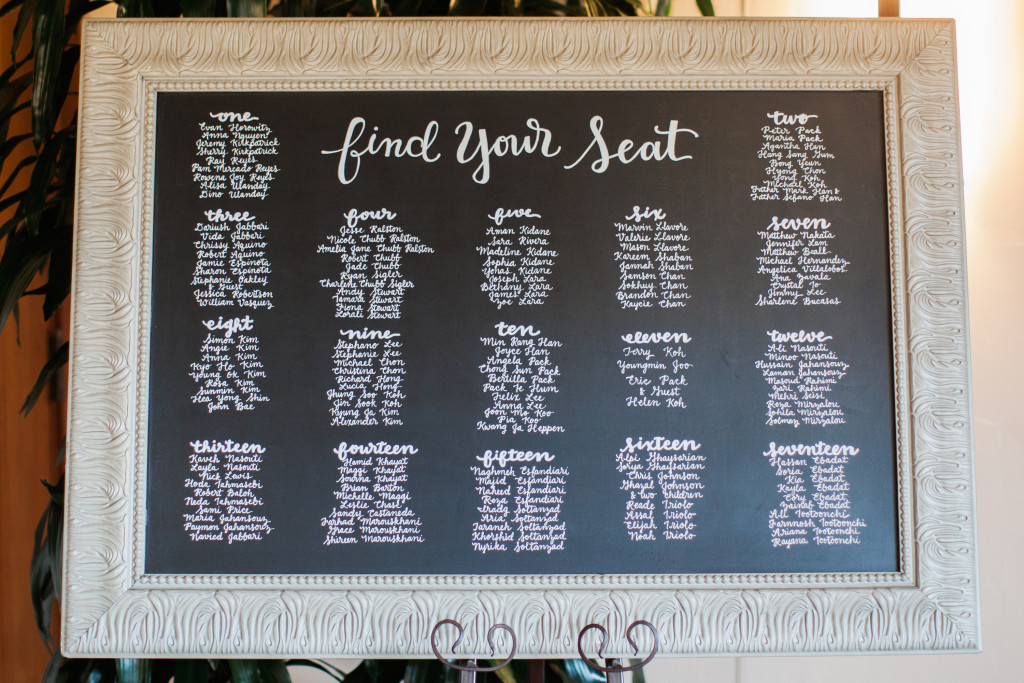 find Your Seat
one
Evan Horowitz
Anna Nguyen
Jeremy Kirkpatrick
Sherry Kirkpatrick
Raj Reyes
Pam Mercado Reyes
Rowena Joy Reyes
Alisa Wanday
Dino Wanday
two
Peter Pack
Maria Pack
Agantha Han
Hong Sang Gum
Bong Yeun
Hyong Chon
Yong Koh
Michael Koh
Father Mark Han &
Father Sefano Han
three
Dariush Jabbari
Vida Jabbari
Chrissy Aquino
Robert Aquino
Jamie Espinota
Sharon Espinota
Stephanie Oakley
& Guest
Jessica Robertson
William Vasquez
four
Jesse Ralston
Nicole Chubb Ralston
Amelia Jane Chubb Ralston
Robert Chubb
Jade Chubb
Ryan Sigler
Charlene Chubb Sigler
Andy Stewart
Tamara Stewart
Fiena Stewart
Lorali Stewart
five
Aman Kidane
Sara Rivera
Madeline Kidane
Sophia Kidane
Yonas Kidane
Joseph Lara
Bethany Lara
James Lara
Zoe Lara
six
Marvin Llavore
Valerie Llavore
Mason Llavore
Kareem Shaban
Jannah Shaban
Samson Chan
Sokhuy Chan
Brandon Chan
Kaycie Chan
seven
Matthew Nakata
Jennifer Lam
Matthew Ball
Michael Hernandez
Angelica Villalobos
Ana Zavala
Crystal To
Jimmy Lee
Sharlene Bucasas
eight
Simon Kim
Angie Kim
Anna Kim
Kyo Ho Kim
Young Ok Kim
Rosa Kim
Sunmin Kim
Hea Yong Shin
John Bae
nine
Stephano Lee
Stephanie Lee
Michael Chon
Christina Chon
Richard Hong
Lucia Hong
Jhung Soo Koh
Jin Sook Koh
Kyung Ja Kim
Alexander Kim
ten
Min Rang Han
Joyce Han
Angela Pack
Chong Sun Pack
Bertilla Pack
Pack Te Hum
Felix Lee
Anna Lee
Joon Mo Koo
Pia Koo
Kwang Ja Heppen
eleven
Terry Koh
Youngmin Joo
Eric Pack
& Guest
Helen Koh
twelve
Ali Nasouti
Minoo Nasouti
Hussain Jahansouz
Laman Jahansouz
Masoud Rahimi
Zari Rahimi
Mehri Sessi
Roza Mirzalou
Sohila Mirzalou
Solmaz Mirzalou
thirteen
Kaveh Nasouti
Layla Nasouti
Nick Lewis
Hoda Tahmasebi
Robert Baloh
Neda Tahmasebi
Sami Price
Maria Jahansouz
Paymon Jahansouz
Navied Jabbari
fourteen
Hamid Khayat
Maggi Khayat
Sourna Khayat
Brian Barton
Michelle Maggi
Leslie Chasl
Sandy Castaneda
Farhad Marouskhani
Grace Marouskhani
Shireen Marouskhani
fifteen
Naghmeh Esfandiari
Majid Esfandiari
Naheed Esfandiari
Roza Esfandiari
Iradg Soltanzad
Aria Soltanzad
Taraneh Soltanzad
Khorshid Soltanzad
Nyrika Soltanzad
sixteen
Alsi Ghaysarian
Sorya Ghaysarian
Chris Johnson
Ghazal Johnson
& two children
Reade Iriolo
Assal Iriolo
Elijah Iriolo
Noah Iriolo
seventeen
Hassan Ebadat
Soria Ebadat
Kia Ebadat
Kayla Ebadat
Cory Ebadat
Zainab Ebadat
Ali Tootoonchi
Farnnosh Tootoonchi
Ariana Tootoonchi
Rayana Tootoonchi